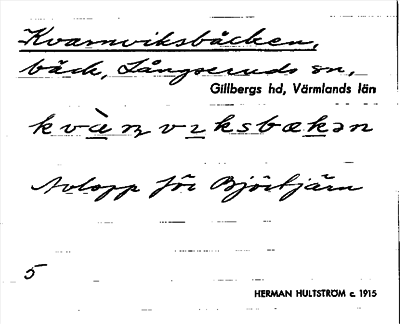 Kvarnviksbäcken,
bäck, Långseruds sn,
Gillbergs hd, Värmlands län
kvànvɩksbækən
Avlopp för Björtjärn
5
HERMAN HULTSTRÖM c. 1915